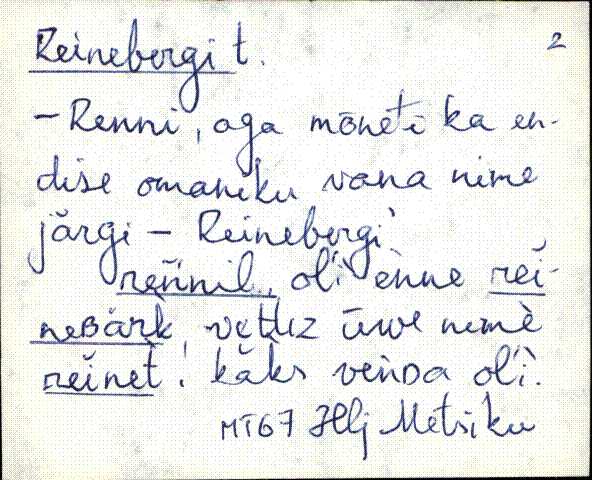 Reinebergi t. 2
– Renni, aga mõneti ka en-
dise omaniku vana nime
järgi – Reinebergi
reǹnil, oĺi èǹne rèi-
neBärk, vettiz ūwe nimè
reinet! kàks veǹDa oĺì.
MT67 Hlj Metsiku